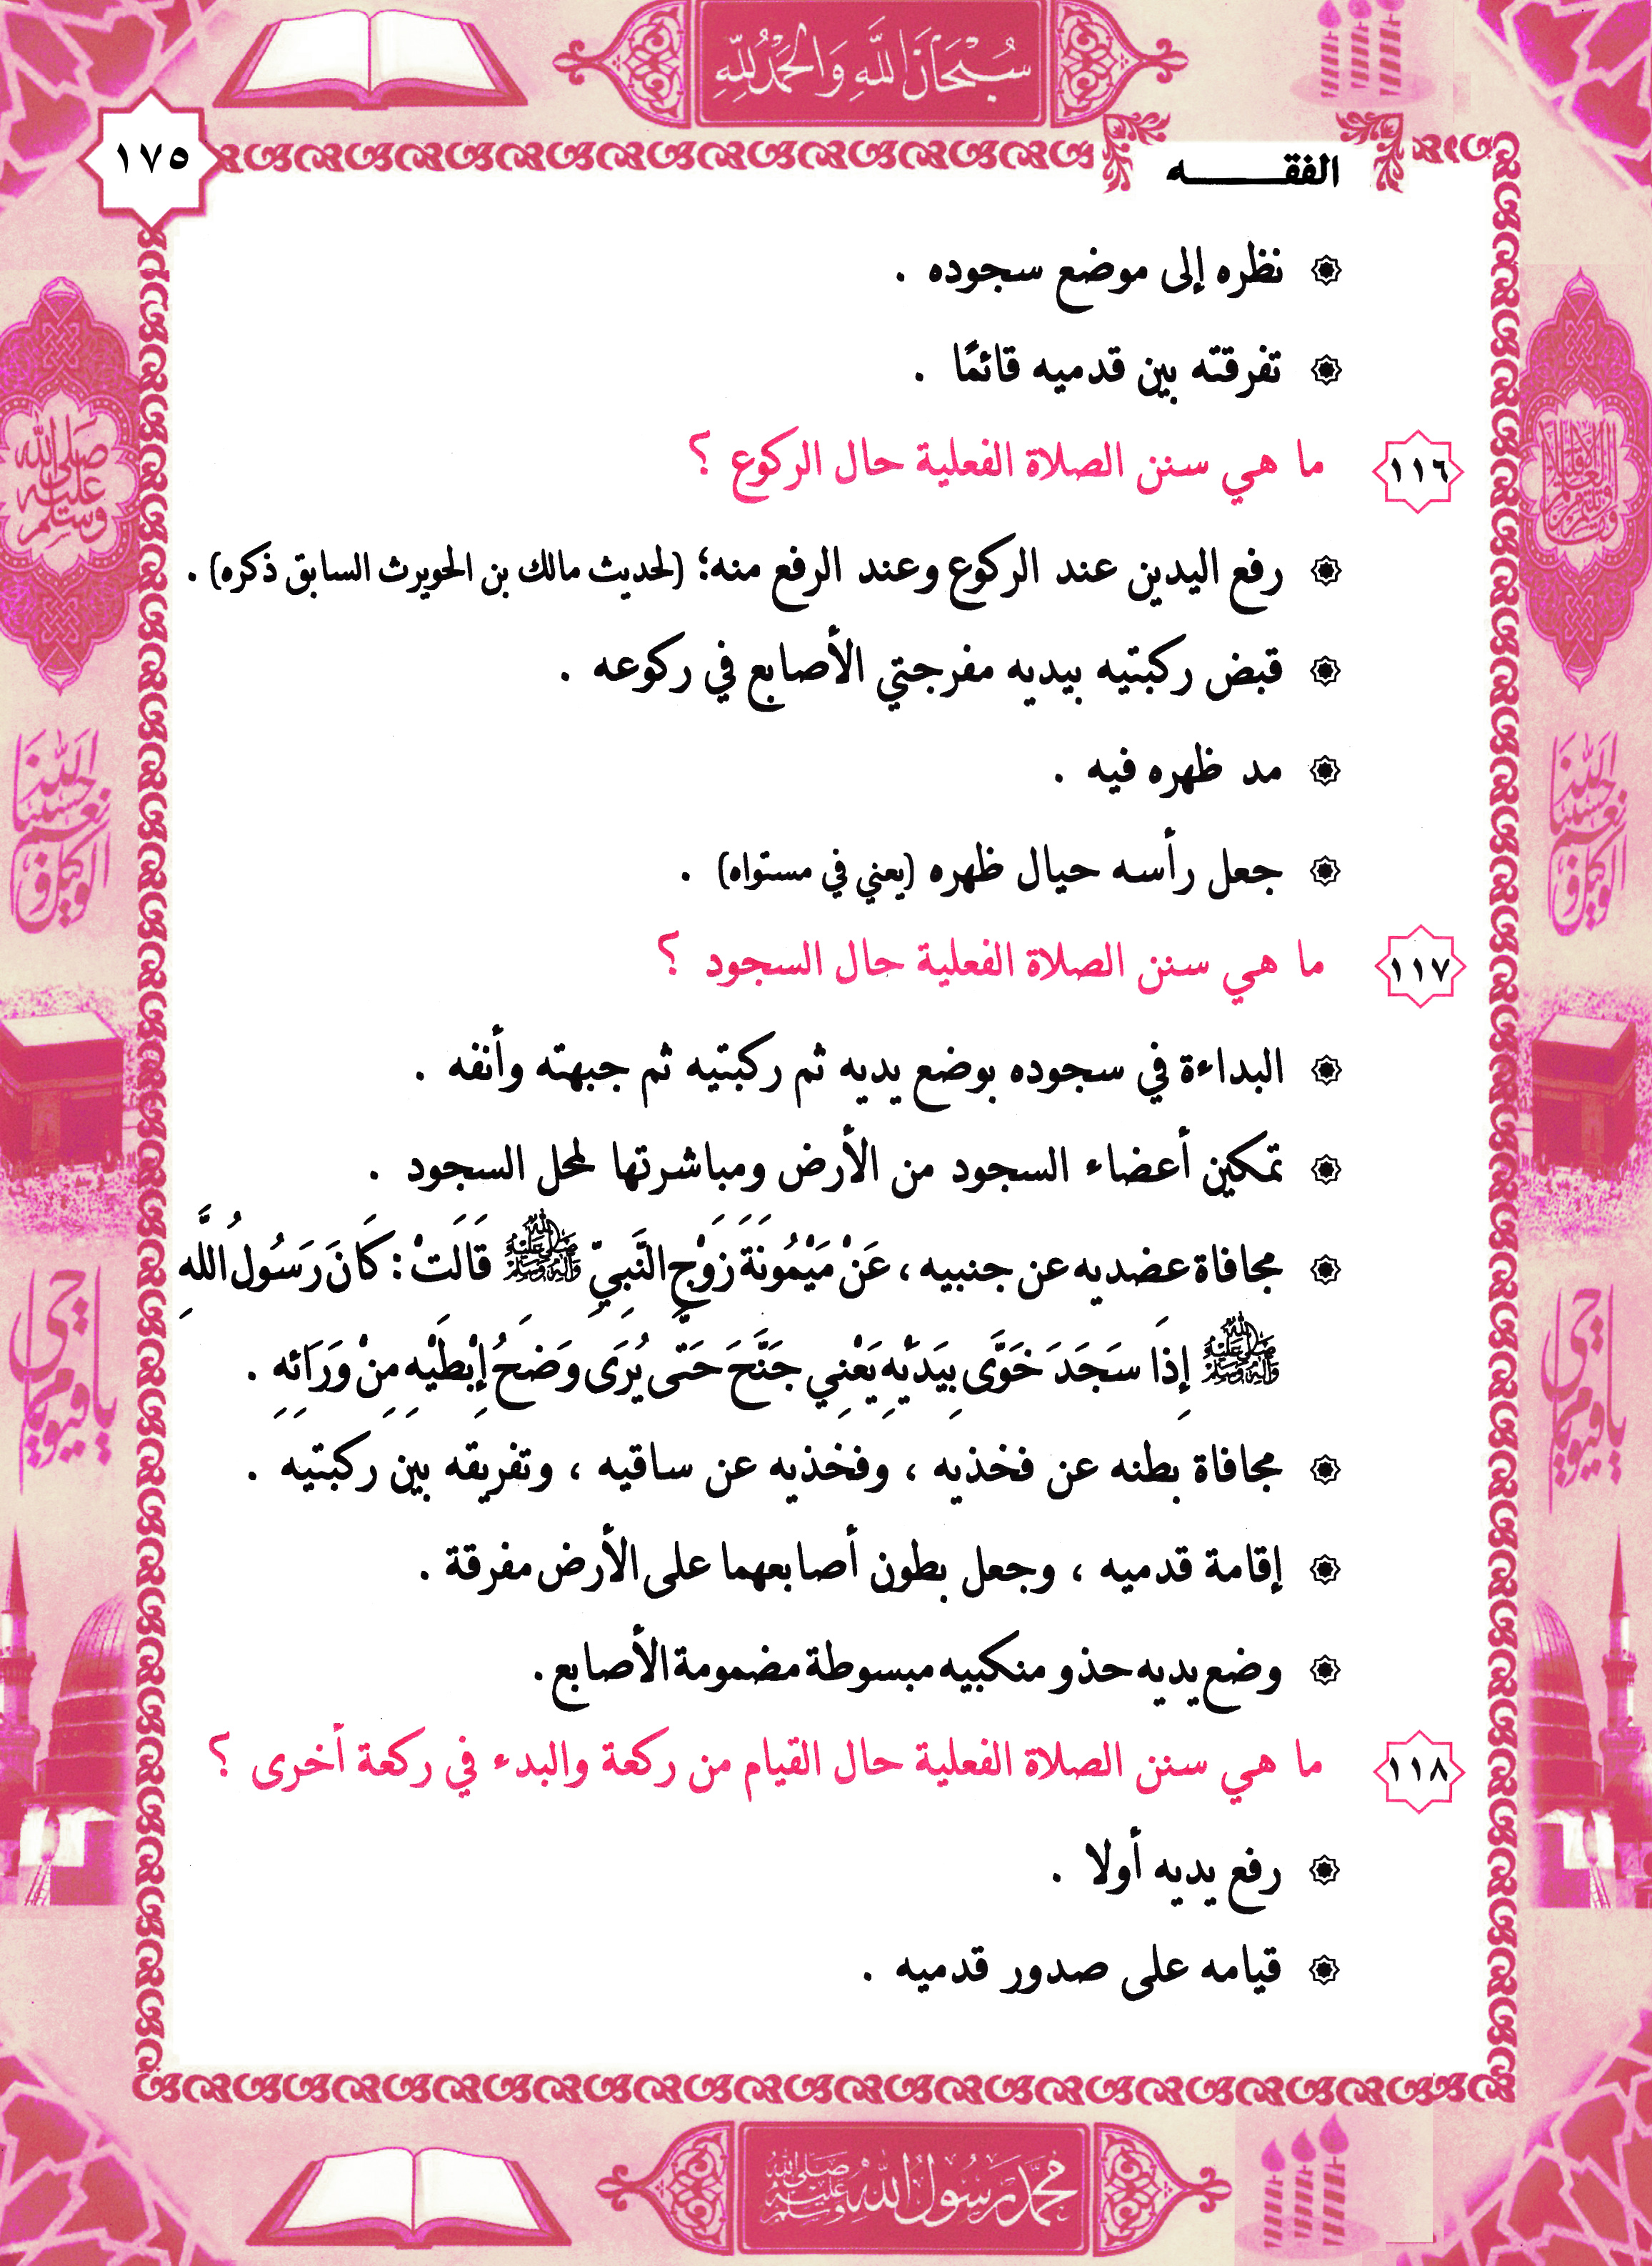 سُبْحَانَ اللَّهِ وَالْحَمْدُ لِلَّهِ
١٧٥
الفقـــــه
نظره إلى موضع سجوده .
تفرقته بين قدميه قائمًا .
١١٦ ما هي سنن الصلاة الفعلية حال الركوع ؟
رفع اليدين عند الركوع وعند الرفع منه؛ (لحديث مالك بن الحويرث السابق ذكره) .
قبض ركبتيه بيديه مفرجتي الأصابع في ركوعه .
مد ظهره فيه .
جعل رأسه حيال ظهره (يعني في مستواه) .
١١٧ ما هي سنن الصلاة الفعلية حال السجود ؟
البداءة في سجوده بوضع يديه ثم ركبتيه ثم جبهته وأنفه .
تمكين أعضاء السجود من الأرض ومباشرتها لمحل السجود .
مجافاة عضديه عن جنبيه ، عَنْ مَيْمُونَةَ زَوْجِ النَّبِيِّ ﷺ قَالَتْ : كَانَ رَسُولُ اللَّهِ
ﷺ إِذَا سَجَدَ خَوَّى بِيَدَيْهِ يَعْنِي جَنَّحَ حَتَّى يُرَى وَضَحُ إِبْطَيْهِ مِنْ وَرَائِهِ .
مجافاة بطنه عن فخذيه ، وفخذيه عن ساقيه ، وتفريقه بين ركبتيه .
إقامة قدميه ، وجعل بطون أصابعهما على الأرض مفرقة .
وضع يديه حذو منكبيه مبسوطة مضمومة الأصابع .
١١٨ ما هي سنن الصلاة الفعلية حال القيام من ركعة والبدء في ركعة أخرى ؟
رفع يديه أولا .
قيامه على صدور قدميه .
صلى الله عليه وسلم
حسبنا الله ونعم الوكيل
حسبنا الله ونعم الوكيل
يا حي يا قيوم
يا حي يا قيوم
محمد رسول الله صلى الله عليه وسلم